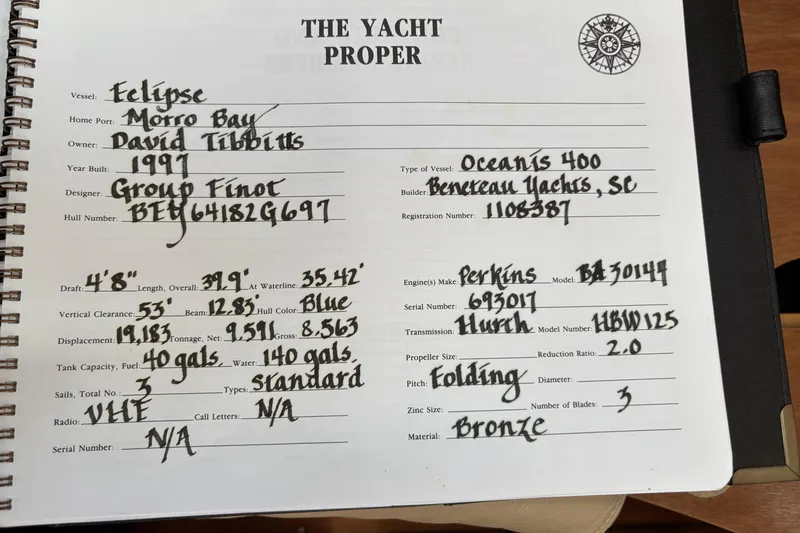 THE YACHT
PROPER
Vessel: Eclipse
Home Port: Morro Bay
Owner: David Tibbitts
Year Built: 1997 Type of Vessel: Oceanis 400
Designer: Group Finot Builder: Beneteau Yachts, SC
Hull Number: BEY64182G697 Registration Number: 1108387
Draft: 4'8" Length, Overall: 39.9' At Waterline: 35.42' Engine(s) Make: Perkins Model: BA30144
Vertical Clearance: 53' Beam: 12.83' Hull Color: Blue Serial Number: 693017
Displacement: 19,183 Tonnage, Net: 9.591 Gross: 8.563 Transmission: Hurth Model Number: HBW125
Tank Capacity, Fuel: 40 gals. Water: 140 gals. Propeller Size: Reduction Ratio: 2.0
Sails, Total No.: 3 Types: Standard Pitch: Folding Diameter:
Radio: VHF Call Letters: N/A Zinc Size: Number of Blades: 3
Serial Number: N/A Material: Bronze